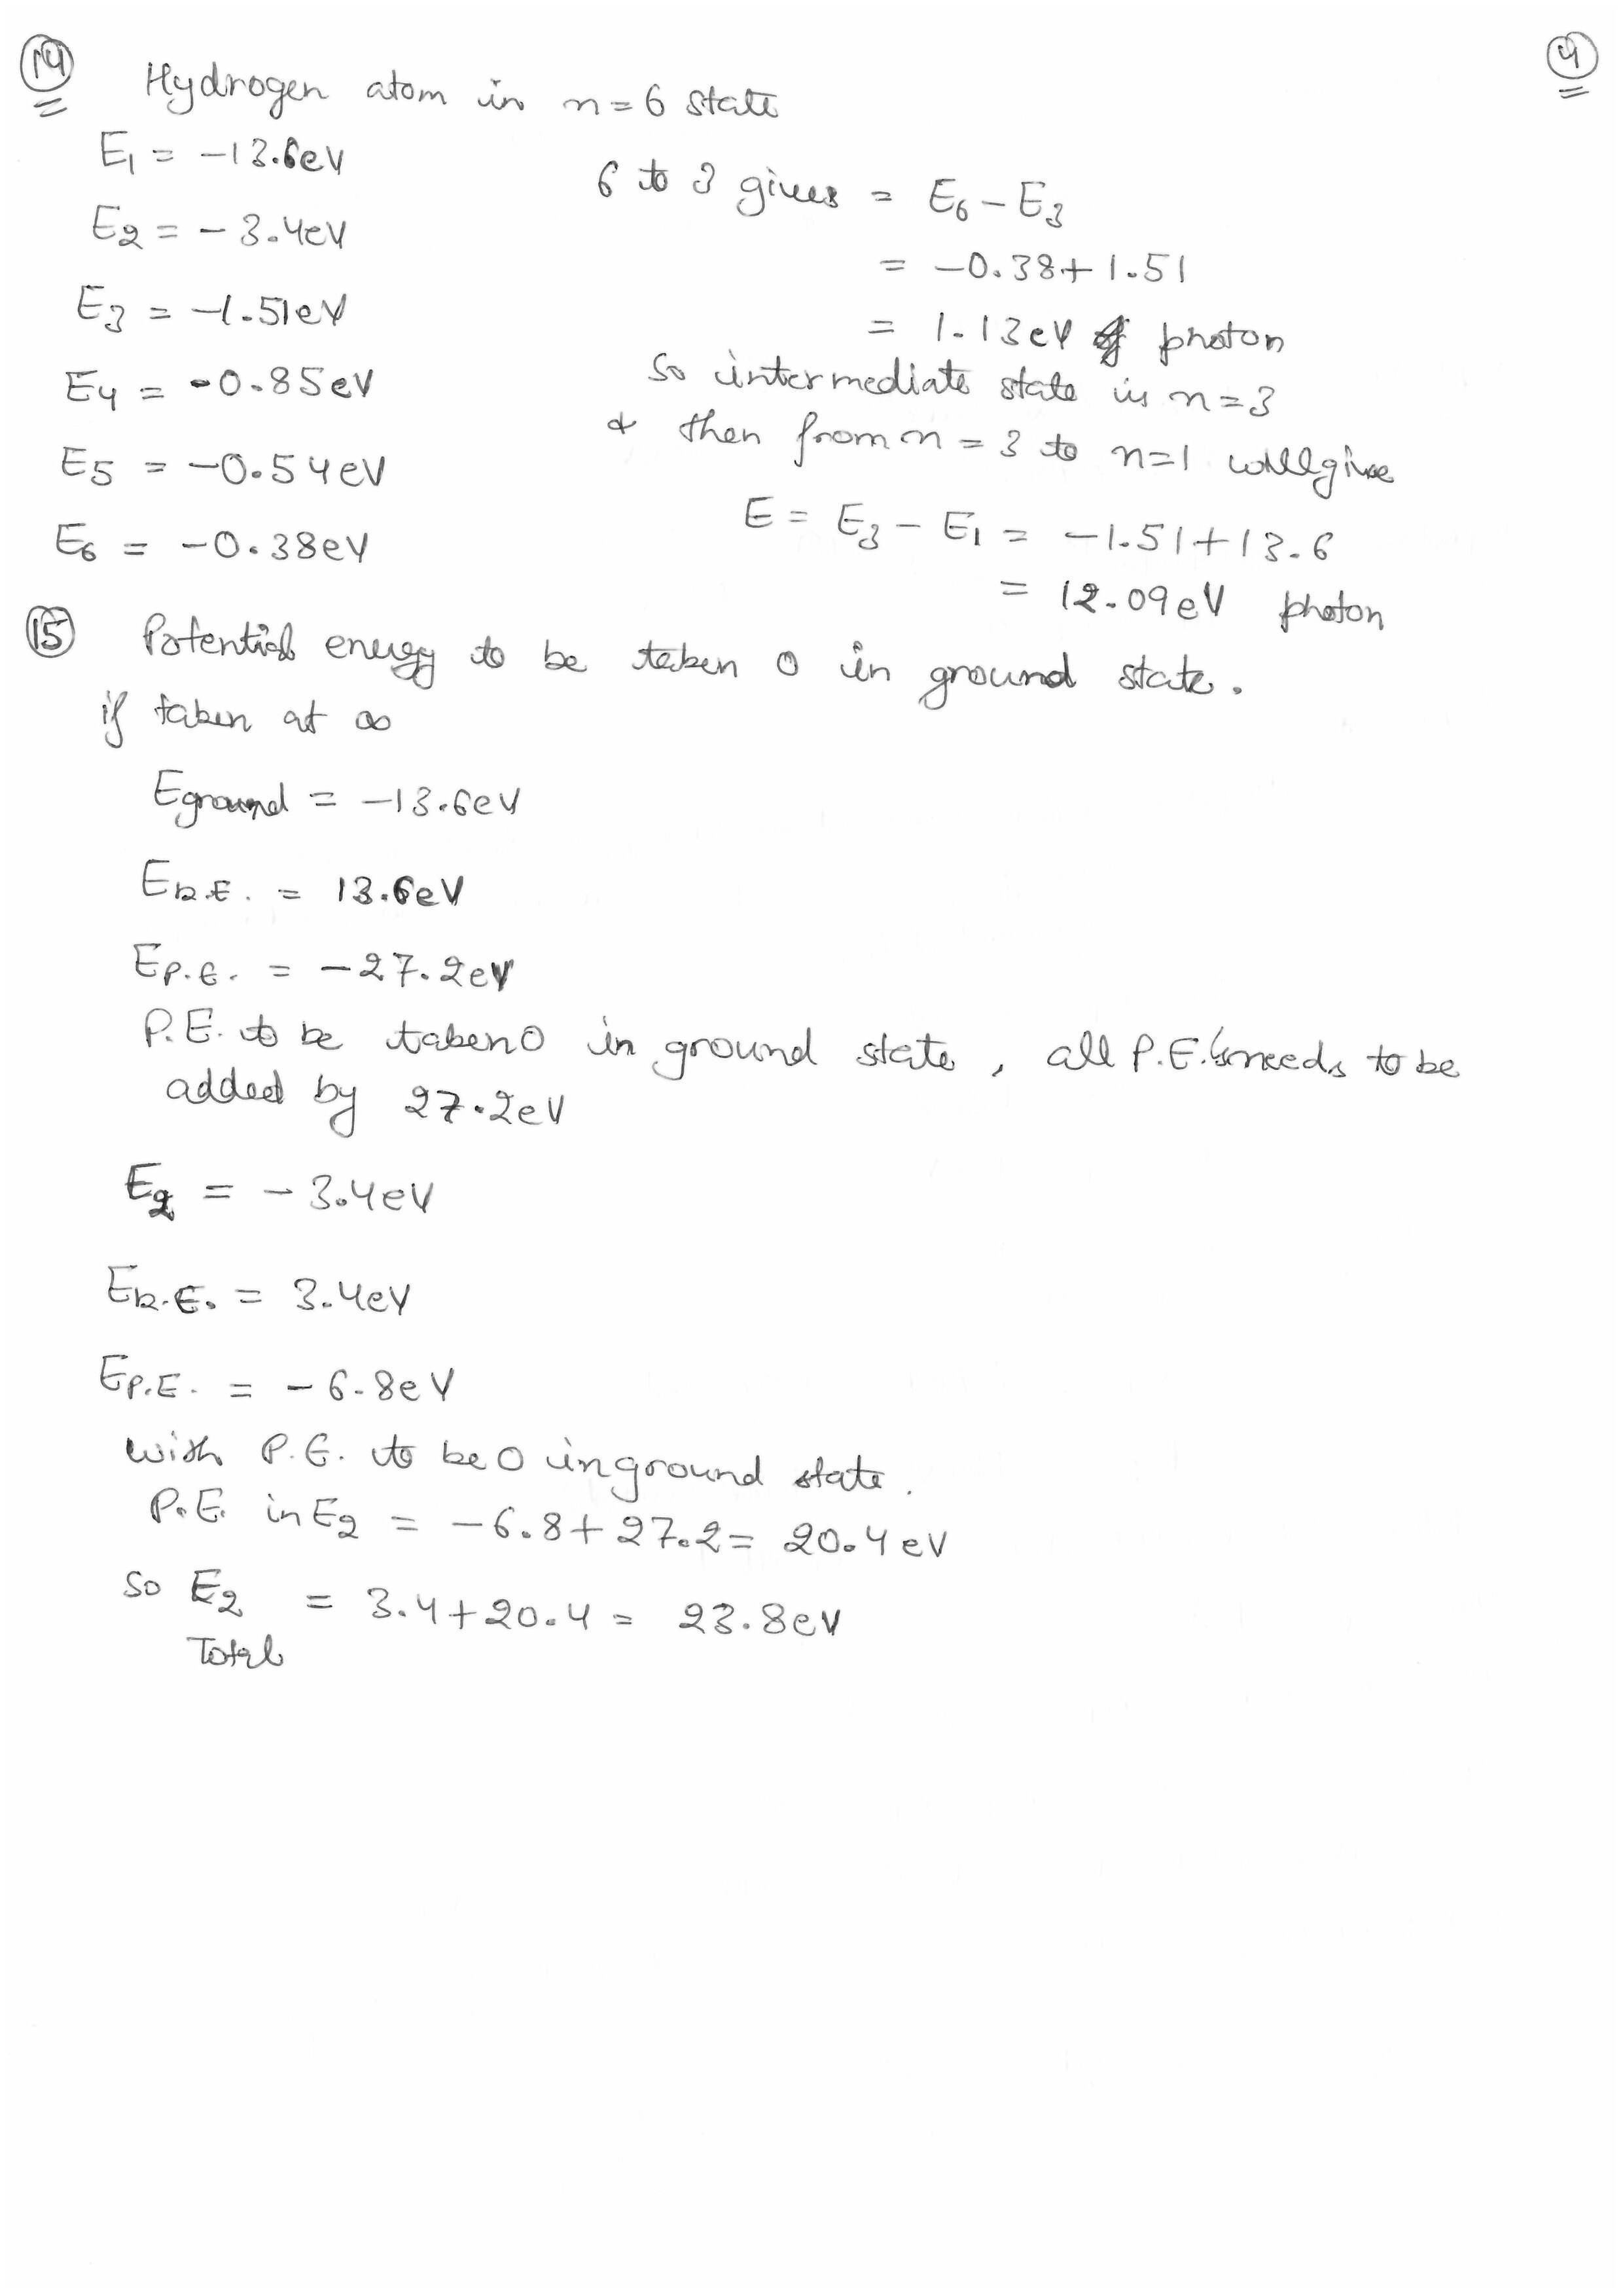 14
4
Hydrogen atom in n=6 state
E1 = -13.6eV
E2 = -3.4eV
E3 = -1.51eV
E4 = -0.85eV
E5 = -0.54eV
E6 = -0.38eV
6 to 3 gives = E6 - E3
= -0.38+1.51
= 1.13eV photon
So intermediate state is n=3
& then from n=3 to n=1 will give
E = E3 - E1 = -1.51+13.6
= 12.09eV photon
15 Potential energy to be taken 0 in ground state.
if taken at ∞
Eground = -13.6eV
EK.E. = 13.6eV
EP.E. = -27.2eV
P.E. to be taken 0 in ground state, all P.E.'s needs to be
added by 27.2eV
E2 = -3.4eV
EK.E. = 3.4eV
EP.E. = -6.8eV
with P.E. to be 0 in ground state.
P.E. in E2 = -6.8+27.2= 20.4eV
So E2 = 3.4+20.4 = 23.8eV
Total